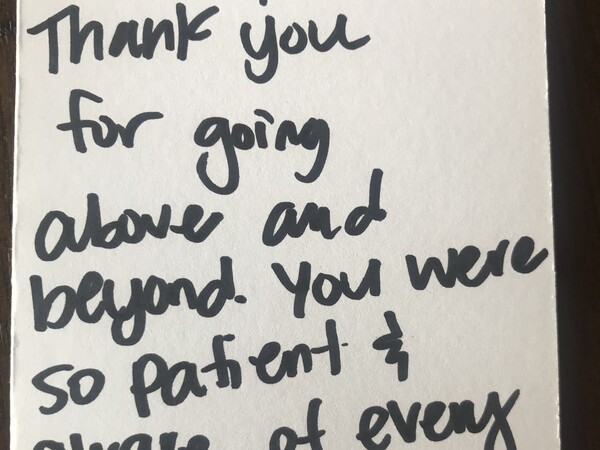 Thank you
for going
above and
beyond. You were
so patient &
aware of every